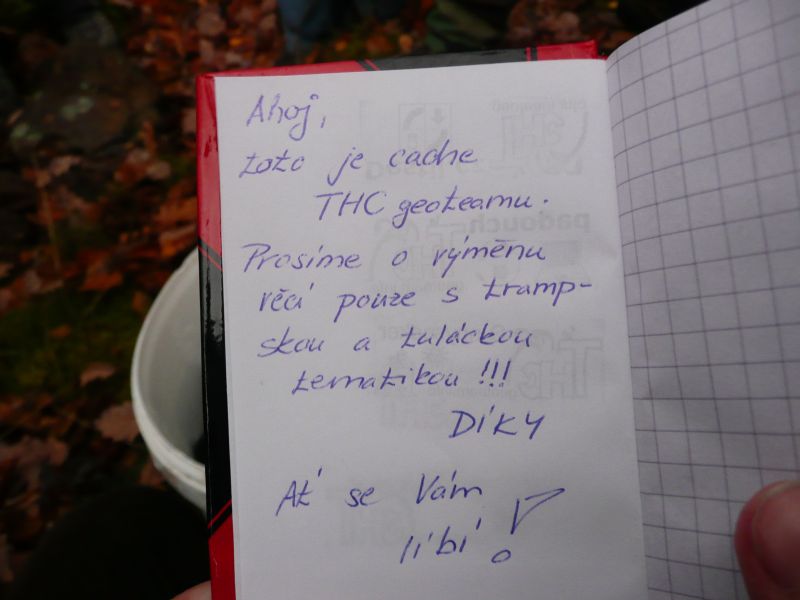 Ahoj,
toto je cache
THC geoteamu.
Prosíme o výměnu
věcí pouze s tramp-
skou a tuláckou
tematikou !!!
DÍKY
Ať se Vám
líbí !
padouch